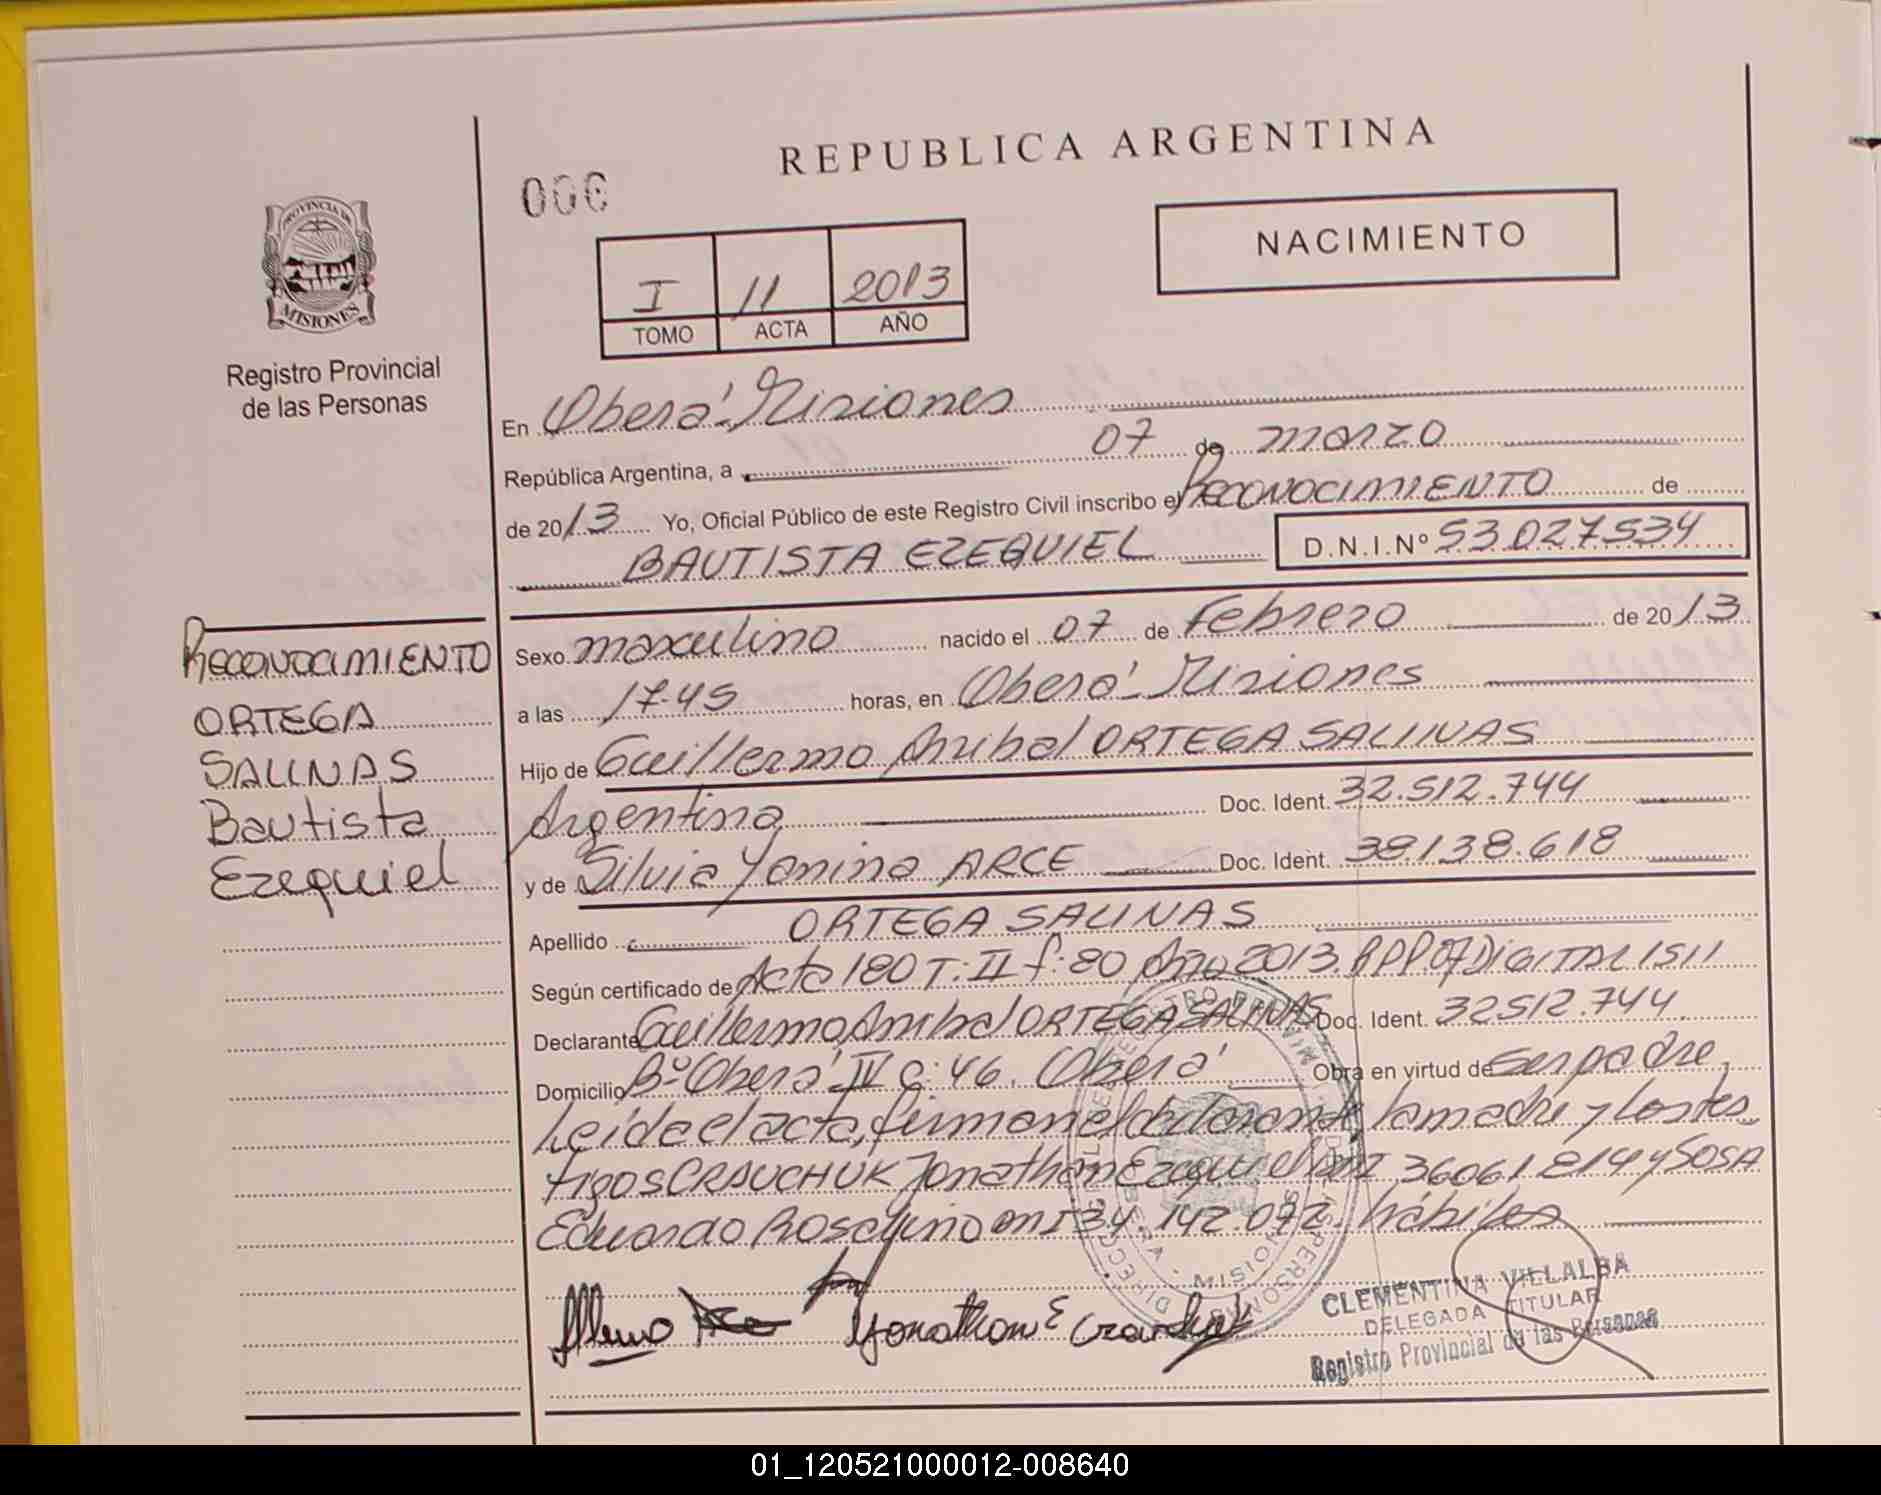 REPUBLICA ARGENTINA
006
NACIMIENTO
PROVINCIA DE
MISIONES
Registro Provincial
de las Personas
I 11 2013
TOMO ACTA AÑO
En Oberá - Misiones
República Argentina, a 07 de marzo
de 2013 Yo, Oficial Público de este Registro Civil inscribo el RECONOCIMIENTO de
BAUTISTA EZEQUIEL D.N.I.Nº 53.027.534
RECONOCIMIENTO
ORTEGA
SALINAS
Bautista
Ezequiel
Sexo masculino nacido el 07 de Febrero de 2013
a las 17.45 horas, en Oberá - Misiones
Hijo de Guillermo Anibal ORTEGA SALINAS
Argentina Doc. Ident. 32.512.744
y de Silvia Yanina ARCE Doc. Ident. 38.138.618
Apellido ORTEGA SALINAS
Según certificado de Acta 180 T: II f: 80 Año 2013. RPP. 07 DIGITAL 1511
Declarante Guillermo Anibal ORTEGA SALINAS Doc. Ident. 32512.744.
Domicilio Bº Oberá IV C: 46. Oberá Obra en virtud de ser padre.
Leida el acta, firman el declarante, la madre y los tes
tigos CRAUCHUK Jonathan Ezequiel DNI 36061.814 y SOSA
Eduardo Roselino DNI 34.142.072. hábiles
Jonathan E
CLEMENTINA VILLALBA
DELEGADA TITULAR
Registro Provincial de las Personas
01_120521000012-008640